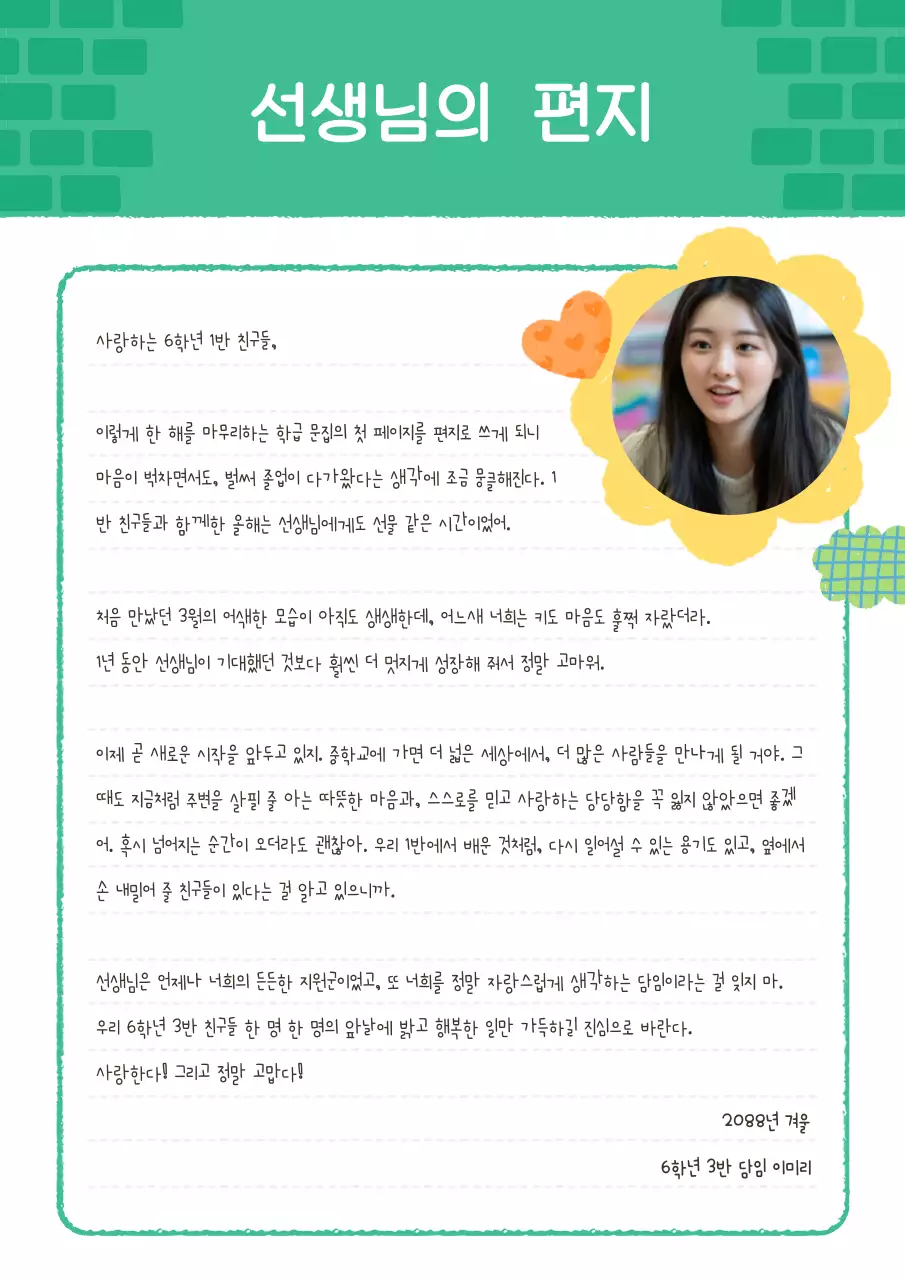 선생님의 편지
사랑하는 6학년 1반 친구들,
이렇게 한 해를 마무리하는 학급 문집의 첫 페이지를 편지로 쓰게 되니
마음이 벅차면서도, 벌써 졸업이 다가왔다는 생각에 조금 뭉클해진다. 1
반 친구들과 함께한 올해는 선생님에게도 선물 같은 시간이었어.
처음 만났던 3월의 어색한 모습이 아직도 생생한데, 어느새 너희는 키도 마음도 훌쩍 자랐더라.
1년 동안 선생님이 기대했던 것보다 훨씬 더 멋지게 성장해 줘서 정말 고마워.
이제 곧 새로운 시작을 앞두고 있지. 중학교에 가면 더 넓은 세상에서, 더 많은 사람들을 만나게 될 거야. 그
때도 지금처럼 주변을 살필 줄 아는 따뜻한 마음과, 스스로를 믿고 사랑하는 당당함을 꼭 잃지 않았으면 좋겠
어. 혹시 넘어지는 순간이 오더라도 괜찮아. 우리 1반에서 배운 것처럼, 다시 일어설 수 있는 용기도 있고, 옆에서
손 내밀어 줄 친구들이 있다는 걸 알고 있으니까.
선생님은 언제나 너희의 든든한 지원군이었고, 또 너희를 정말 자랑스럽게 생각하는 담임이라는 걸 잊지 마.
우리 6학년 3반 친구들 한 명 한 명의 앞날에 밝고 행복한 일만 가득하길 진심으로 바란다.
사랑한다! 그리고 정말 고맙다!
2088년 겨울
6학년 3반 담임 이미리